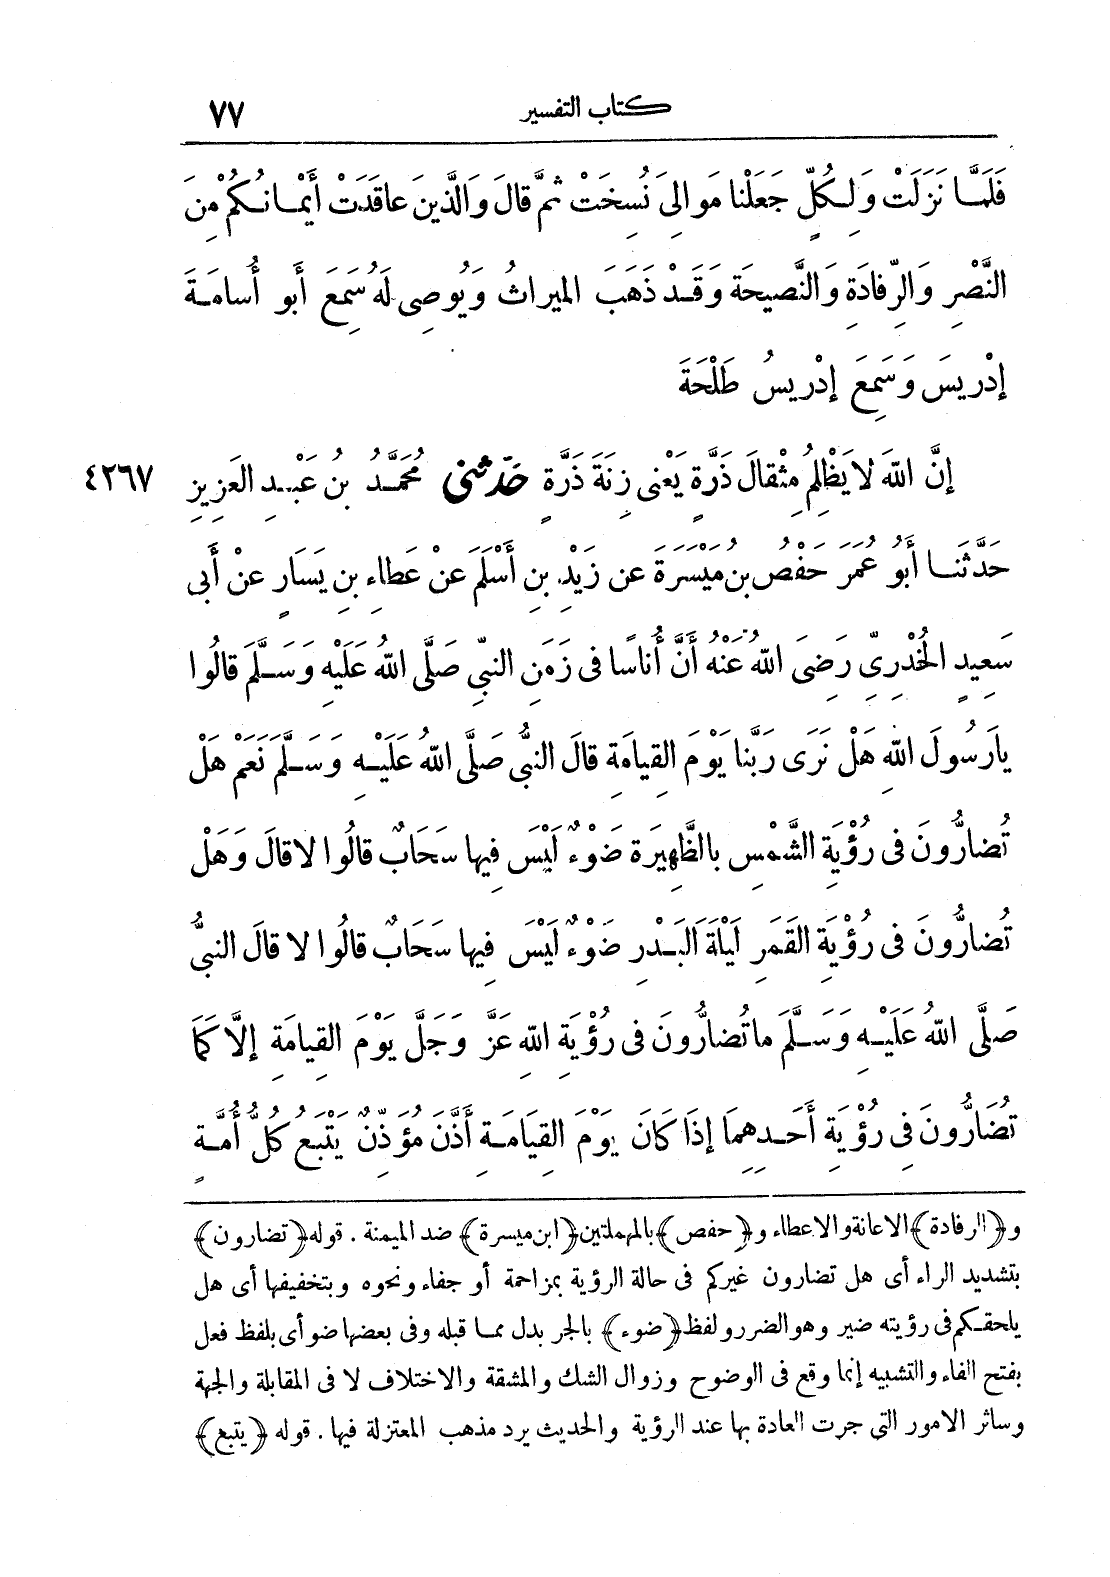 كتاب التفسير
٧٧
فَلَمَّا نَزَلَتْ وَلِكُلٍّ جَعَلْنَا مَوالِىَ نُسِخَتْ ثُمَّ قالَ وَالَّذِينَ عاقَدَتْ أَيْمانُكُمْ مِنَ
النَّصْرِ وَالرِّفادَةِ وَالنَّصيحَةِ وَقَدْ ذَهَبَ الميراثُ وَيُوصِى لَهُ سَمِعَ أبو أُسامَةَ
إدْرِيسَ وَسَمِعَ إدْرِيسُ طَلْحَةَ
إنَّ اللهَ لا يَظْلِمُ مِثْقالَ ذَرَّةٍ يَعْنى زِنَةَ ذَرَّةٍ حَدَّثَنِى مُحَمَّدُ بنُ عَبْدِ العَزِيزِ
٤٢٦٧
حَدَّثَنا أَبُو عُمَرَ حَفْصُ بن مَيْسَرَةَ عن زَيْدِ بنِ أَسْلَمَ عن عَطاءِ بنِ يَسَارٍ عنْ أَبى
سَعِيدٍ الخُدْرِىِّ رَضِىَ اللهُ عَنْهُ أَنَّ أُناسًا فى زَمَنِ النبىِّ صَلَّى اللهُ عَلَيْهِ وَسَلَّمَ قالُوا
يارَسُولَ اللهِ هَلْ نَرَى رَبَّنا يَوْمَ القِيامَةِ قالَ النبىُّ صَلَّى اللهُ عَلَيْهِ وَسَلَّمَ نَعَمْ هَلْ
تُضارُّونَ فى رُؤْيَةِ الشَّمْسِ بالظَّهِيرَةِ ضَوْءٌ لَيْسَ فِيها سَحَابٌ قالُوا لا قالَ وَهَلْ
تُضارُّونَ فى رُؤْيَةِ القَمَرِ لَيْلَةَ البَدْرِ ضَوْءٌ لَيْسَ فِيها سَحَابٌ قالُوا لا قالَ النبىُّ
صَلَّى اللهُ عَلَيْهِ وَسَلَّمَ ما تُضارُّونَ فى رُؤْيَةِ اللهِ عَزَّ وَجَلَّ يَوْمَ القِيامَةِ إلَّا كَمَا
تُضَارُّونَ فى رُؤْيَةِ أَحَدِهِمَا إذَا كَانَ يَوْمَ القِيَامَةِ أَذَّنَ مُؤَذِّنٌ يَتْبَعُ كُلُّ أُمَّةٍ
و﴿الرفادة﴾ الاعانة والاعطاء و﴿حفص﴾ بالمهملتين ﴿ابن ميسرة﴾ ضد الميمنة . قوله ﴿تضارون﴾
بتشديد الراء أى هل تضارون غيركم فى حالة الرؤية بمزاحمة أو جفاء ونحوه وبتخفيفها أى هل
يلحقكم فى رؤيته ضير وهو الضرر ولفظ ﴿ضوء﴾ بالجر بدل مما قبله وفى بعضها ضوأى بلفظ فعل
بفتح الفاء والتشبيه إنما وقع فى الوضوح وزوال الشك والمشقة والاختلاف لا فى المقابلة والجهة
وسائر الامور التى جرت العادة بها عند الرؤية والحديث يرد مذهب المعتزلة فيها . قوله ﴿يتبع﴾